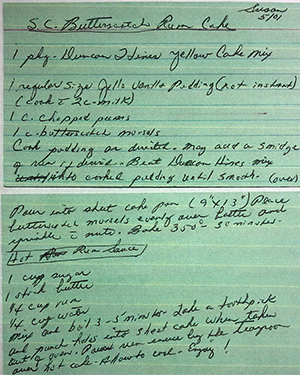 Susan
5/01
S.C. Butterscotch Rum Cake
1 pkg. Duncan Hines Yellow Cake Mix
1 regular size Jello Vanilla Pudding (not instant)
(Cook c 2c. milk)
1 c. chopped pecans
1 c. butterscotch morsels
Cook pudding as directed. May add a smidge
of rum if desired. Beat Duncan Hines mix
into cooked pudding until smooth. (over)
Pour into sheet cake pan (9"x13") Place
butterscotch morsels evenly over batter and
sprinkle c nuts. Bake 350° 30 minutes.
Hot Rum Sauce
1 cup sugar
1 stick butter
1/4 cup rum
1/4 cup water
Mix and boil 3-5 minutes. Take a toothpick
and punch holes into sheet cake when taken
out of oven. Pour rum sauce by the teaspoon
over hot cake. Allow to cool. Enjoy!